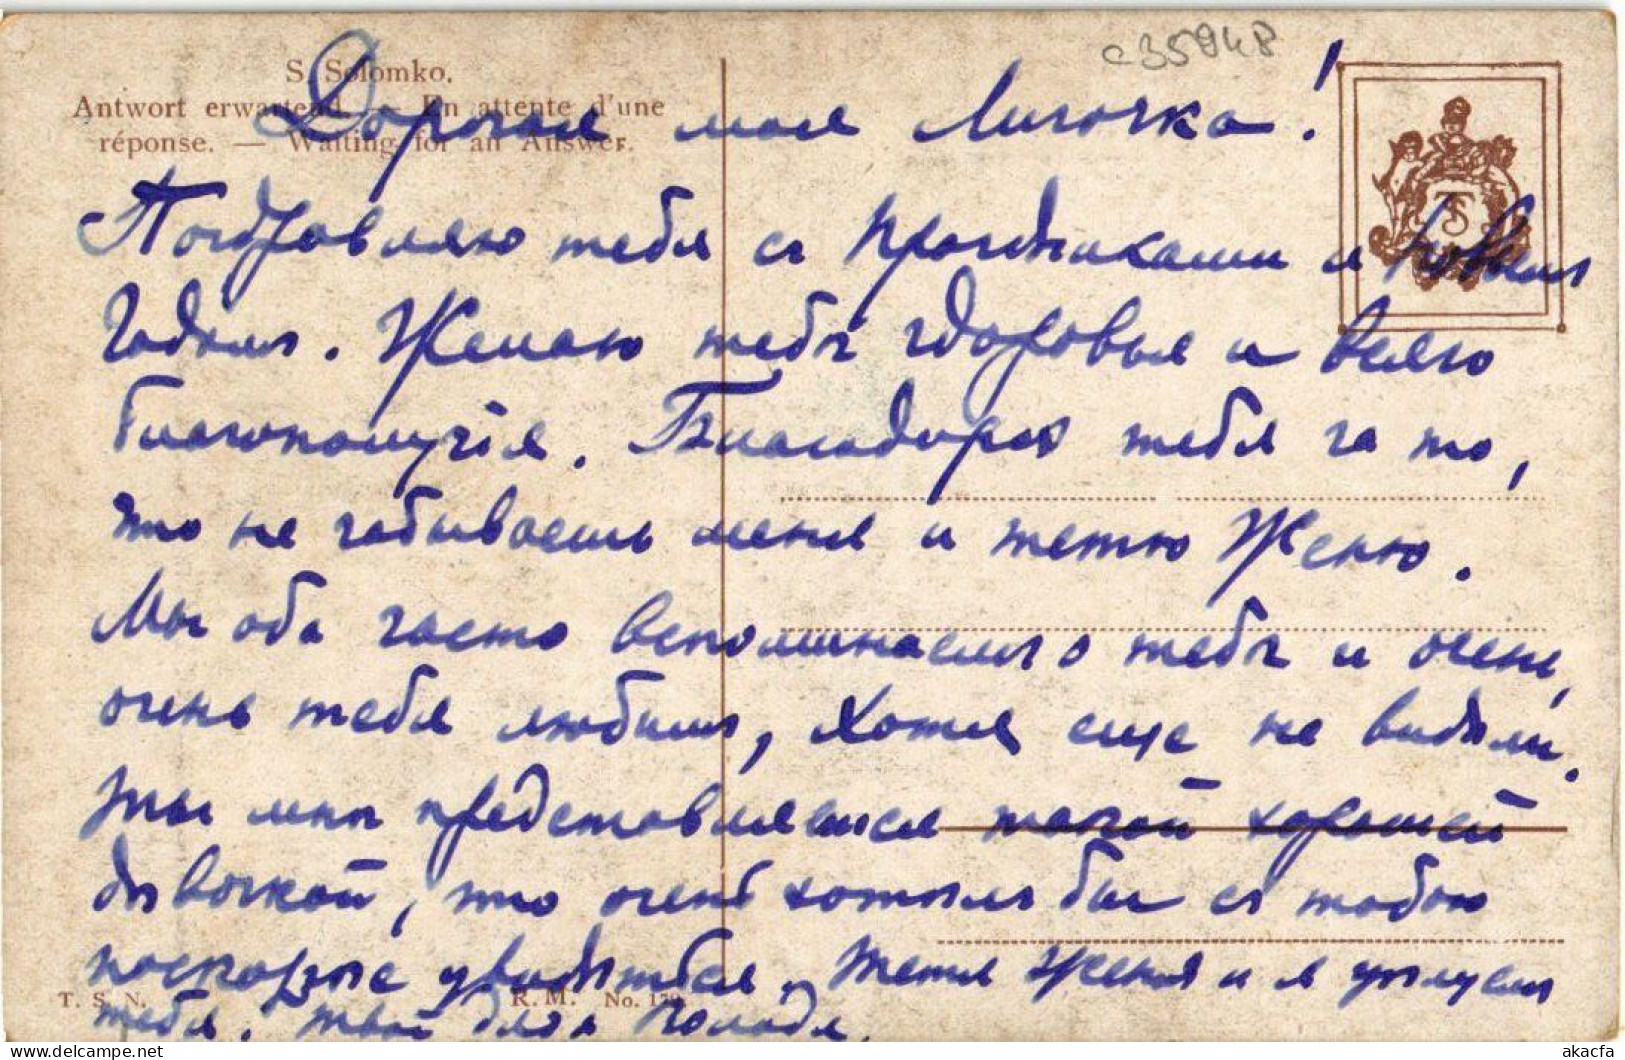 с35948
S. Solomko.
Antwort erwartend. — En attente d'une
réponse. — Waiting for an Answer.
TSN
Дорогая моя Лигочка!
Поздравляю тебя съ праздниками и Новымъ
Годомъ. Желаю тебѣ здоровья и всяго
благополучія. Благодарю тебя за то,
что не забываешь меня и тетю Женю.
Мы оба часто вспоминаемъ о тебѣ и очень,
очень тебя любимъ, хотя еще не видѣли.
Ты мнѣ представляешься такой хорошей
дѣвочкой, что очень хотѣлъ бы съ тобою
поскорѣе увидѣться. Тетя Женя и я цѣлуемъ
тебя. Твой дядя Володя.
T. S. N.
R. M. No. 179.
akacfa